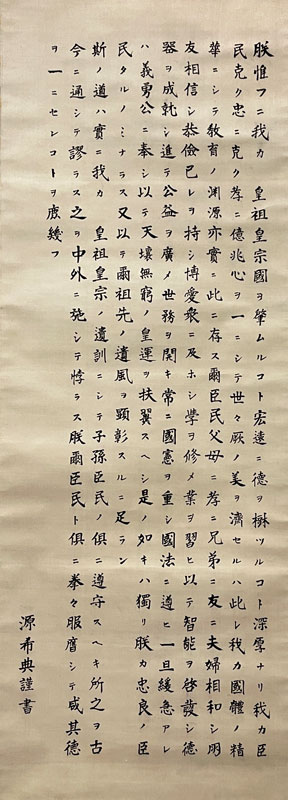 朕惟フニ我カ　皇祖皇宗國ヲ肇ムルコト宏遠ニ德ヲ樹ツルコト深厚ナリ我カ臣
民克ク忠ニ克ク孝ニ億兆心ヲ一ニシテ世々厥ノ美ヲ濟セルハ此レ我カ國體ノ精
華ニシテ教育ノ淵源亦實ニ此ニ存ス爾臣民父母ニ孝ニ兄弟ニ友ニ夫婦相和シ朋
友相信シ恭儉己レヲ持シ博愛衆ニ及ホシ學ヲ修メ業ヲ習ヒ以テ智能ヲ啓發シ德
器ヲ成就シ進テ公益ヲ廣メ世務ヲ開キ常ニ國憲ヲ重シ國法ニ遵ヒ一旦緩急アレ
ハ義勇公ニ奉シ以テ天壤無窮ノ皇運ヲ扶翼スヘシ是ノ如キハ獨リ朕カ忠良ノ臣
民タルノミナラス又以テ爾祖先ノ遺風ヲ顯彰スルニ足ラン
斯ノ道ハ實ニ我カ　皇祖皇宗ノ遺訓ニシテ子孫臣民ノ俱ニ遵守スヘキ所之ヲ古
今ニ通シテ謬ラス之ヲ中外ニ施シテ悖ラス朕爾臣民ト俱ニ拳々服膺シテ咸其德
ヲ一ニセンコトヲ庶幾フ
源希典謹書